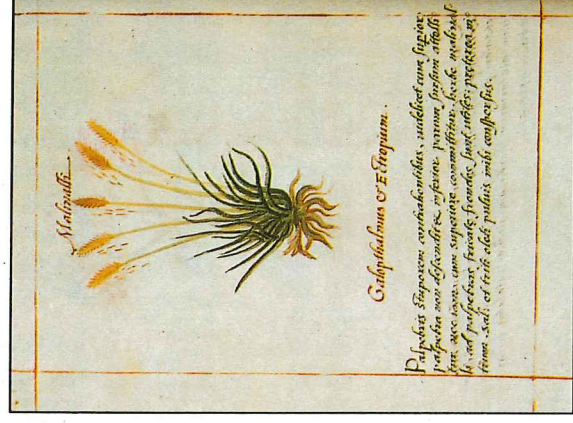 Malinalli.
Galopthalmus & Ectropium.
Palpebris stuporem contrahentibus, videlicet cum superior
palpebra non descendit & inferior parum sursum attolli
tur nec tum cum superiore committitur, herbe malinal
li ad palpebras fricatę frondes sunt utiles: preterea ni
trum sal, et triti oleti puluis inibi conspersus.